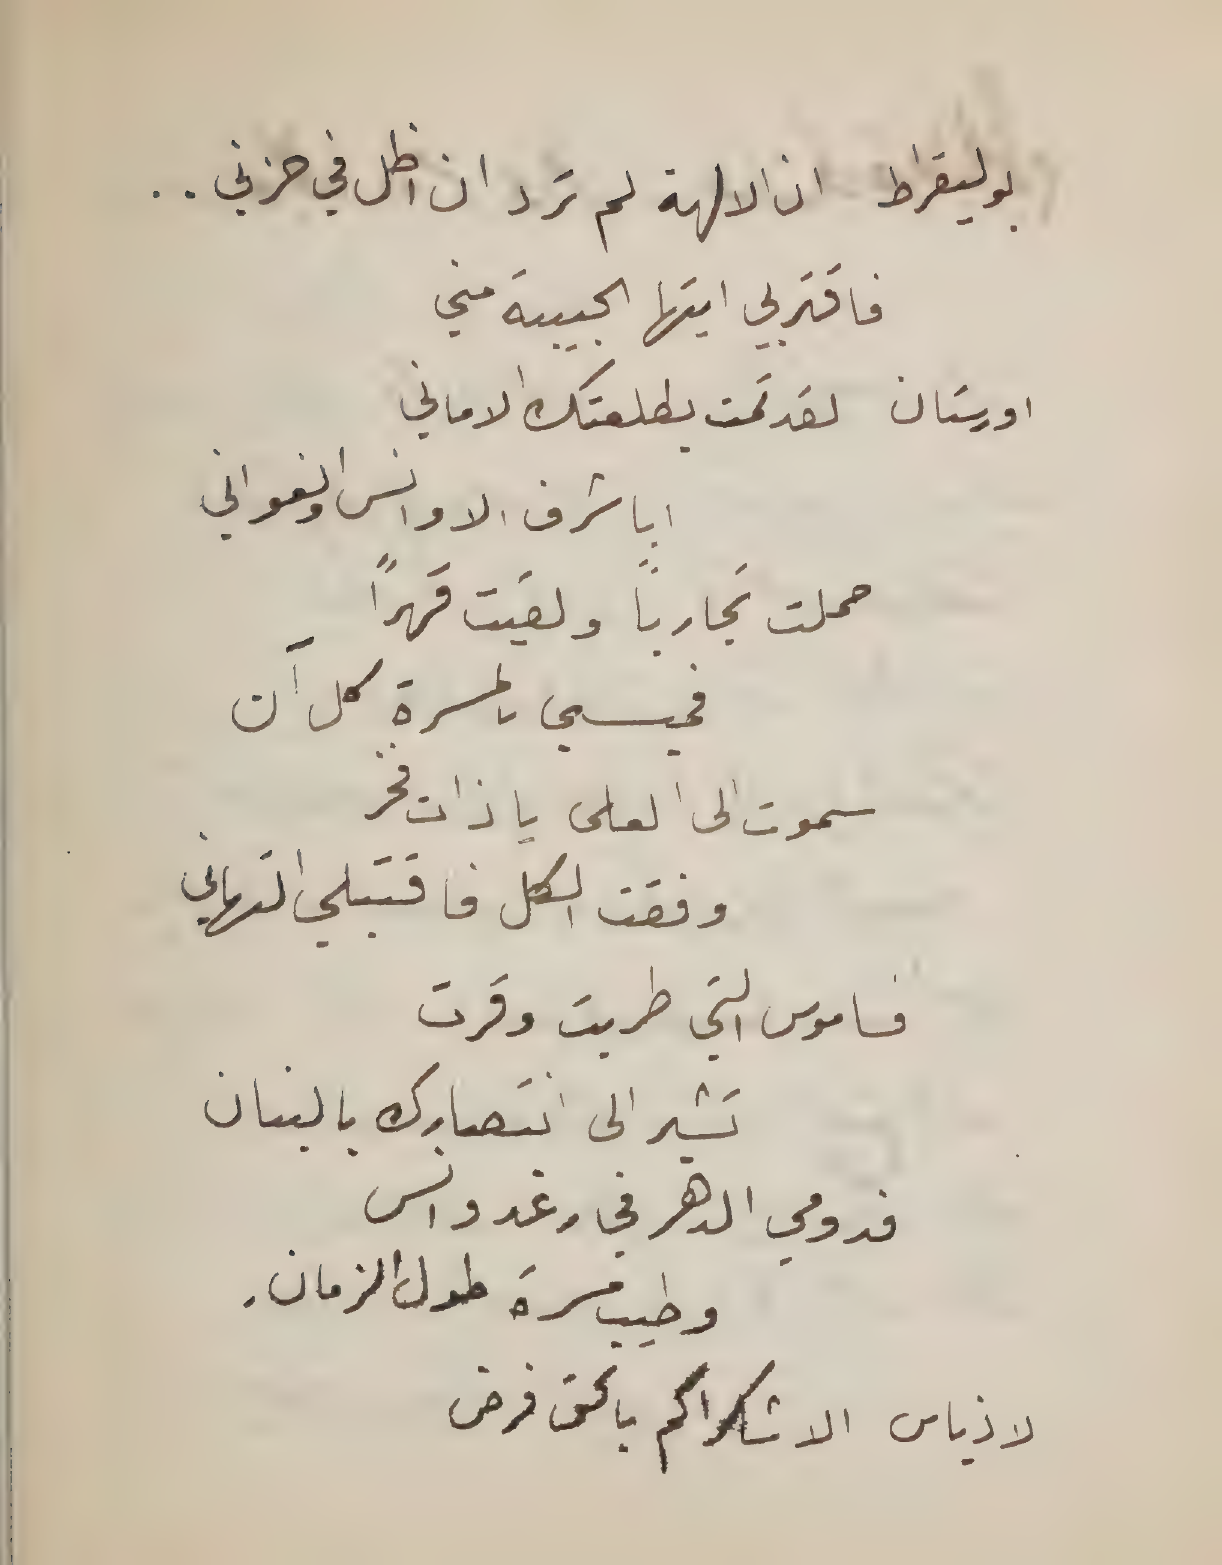 بوليقراط ان الالهة لم ترد ان اظل في حزني ..
فاقتربي ايتها الحبيبة مني
اورستان لقد تمت بطلعتك الاماني
ايا شرف الاوانس والغواني
حملت تجارباً ولقيت قهراً
فميسي بالمسرة كل آن
سموت الى العلى يا ذات فخر
وفقت الكل فاقتبلي التهاني
فساموس التي طربت وقرت
تشير الى انتصارك بالبنان
فدومي الدهر في رغد وانس
وطيب مسرة طول الزمان .
لاذياس الا شكراكم بالحق فرض